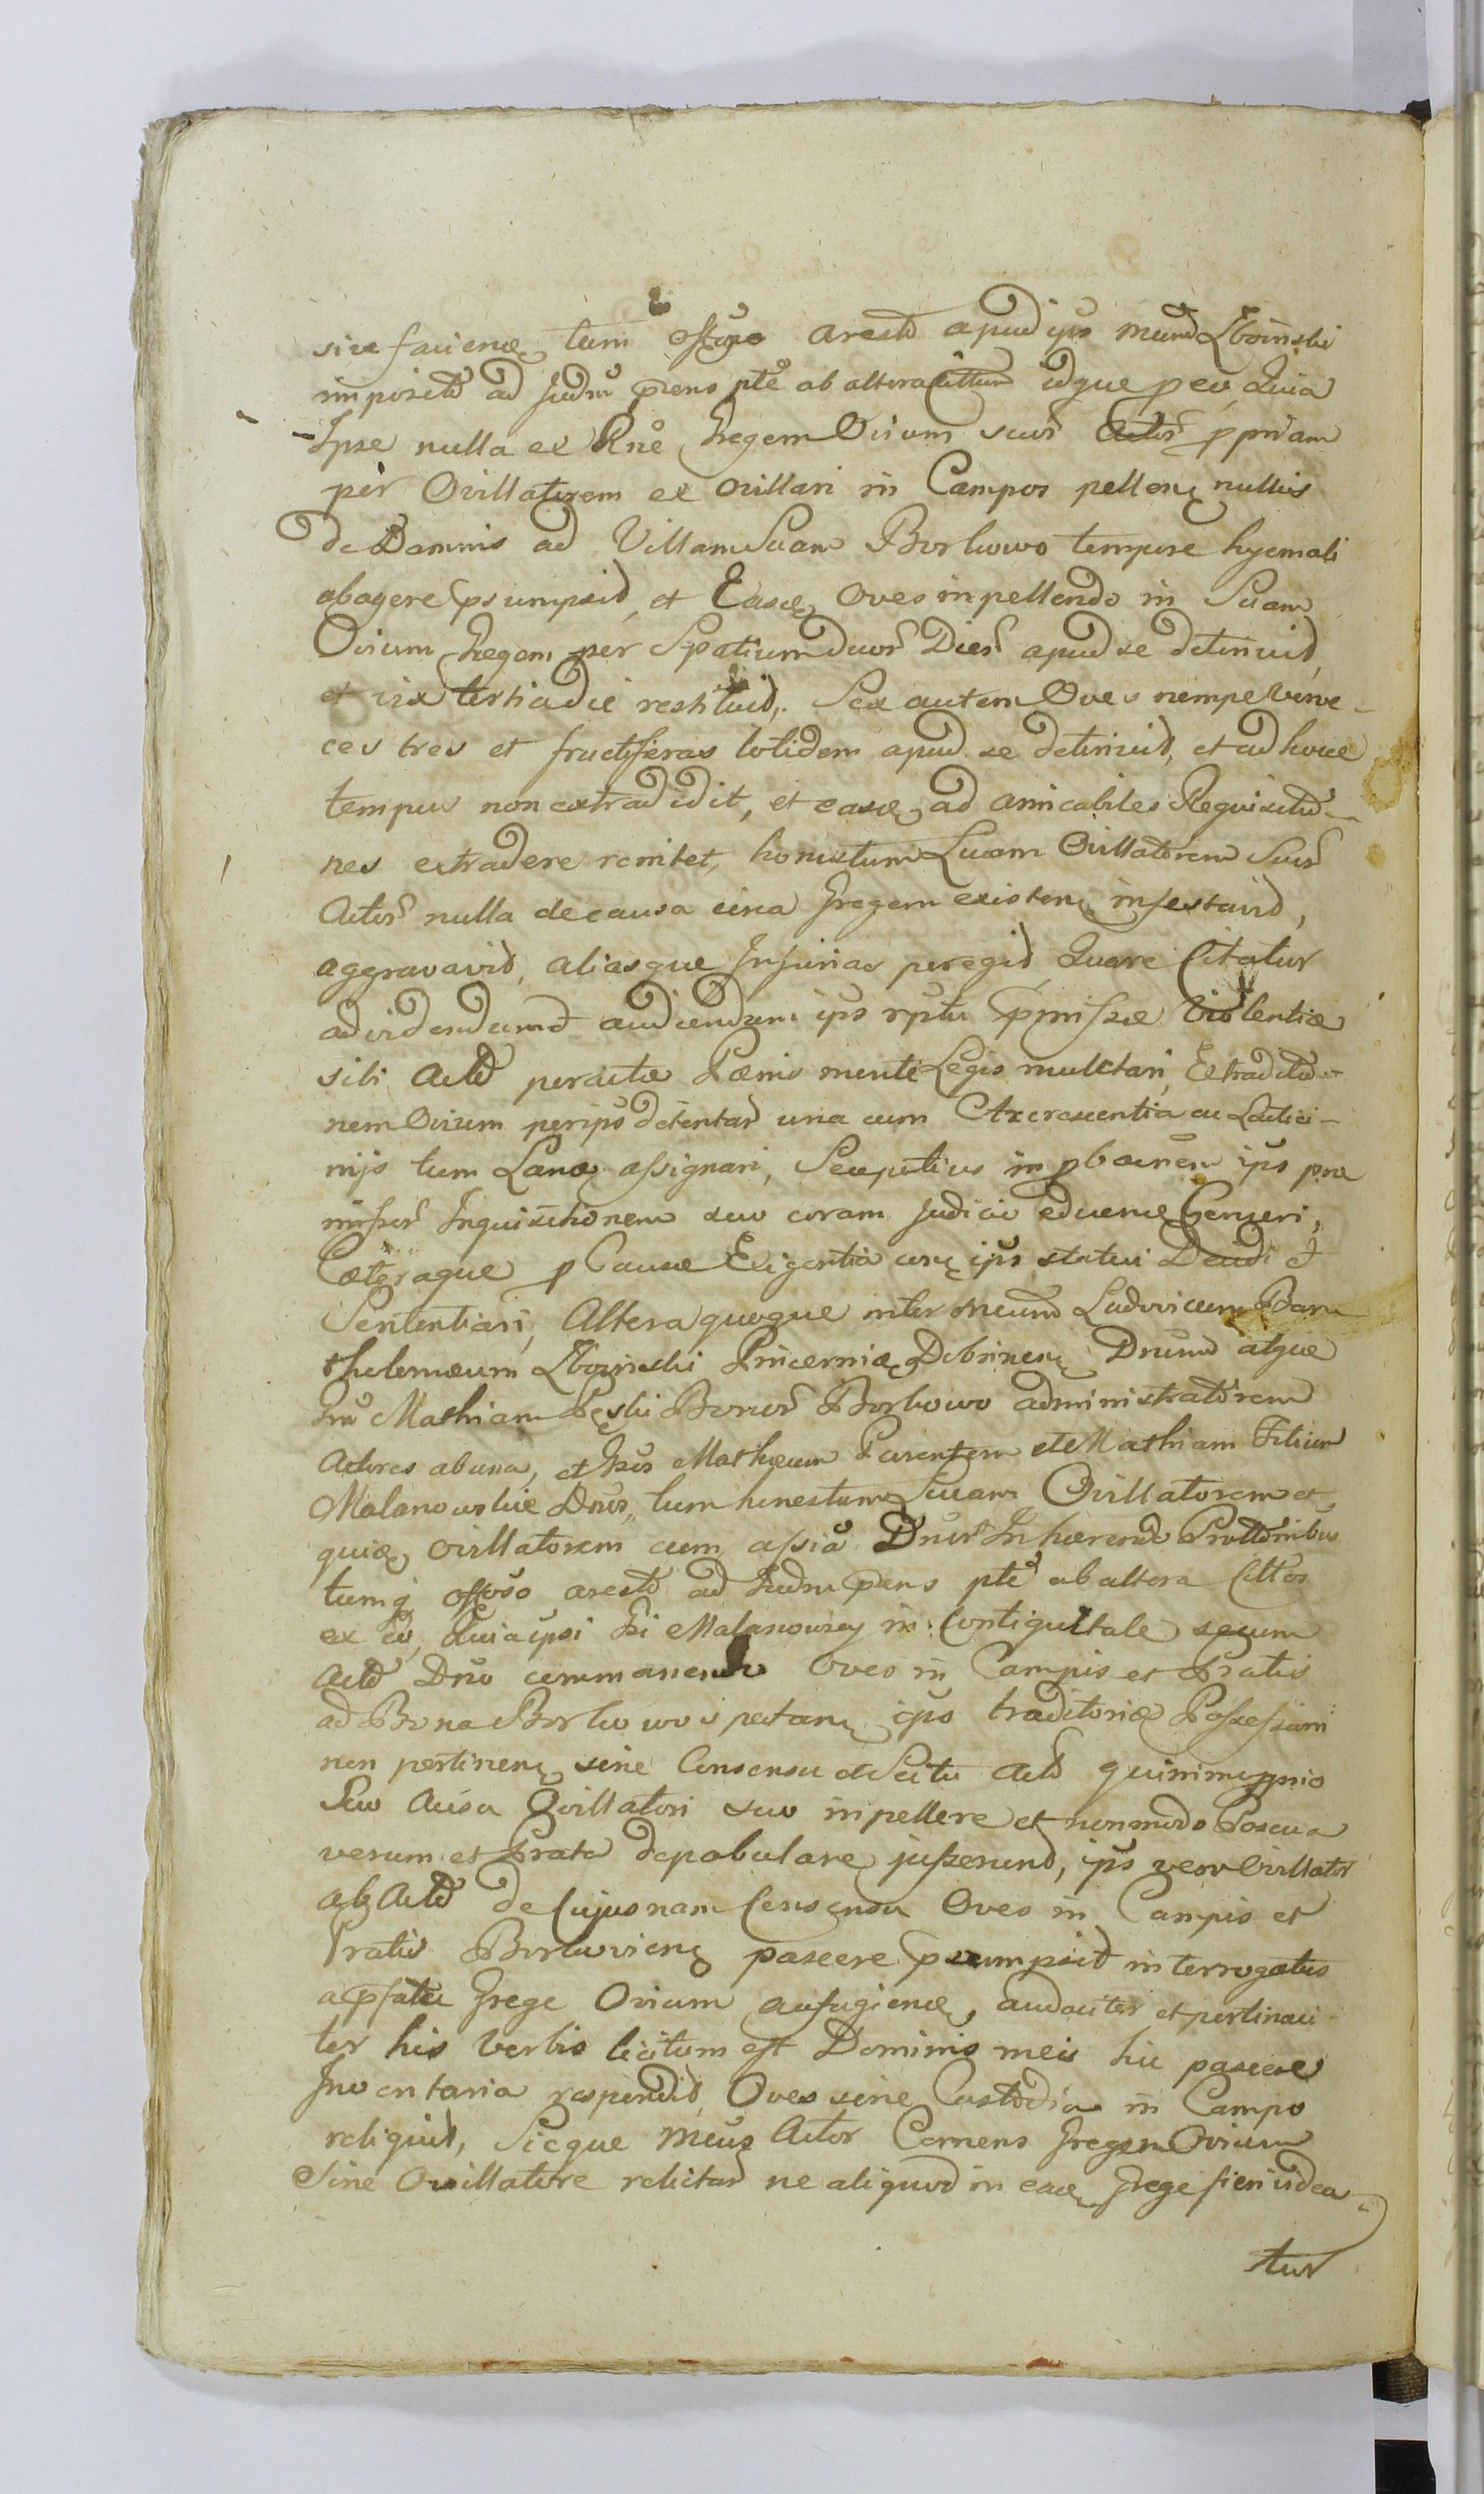 sive facienᵭ, tum offoso aresto apud ips mund Zboinski
imposito ad Judm prens pte ab altera Cittum idque p eo, Quia
Ipse nulla ex Rne Gregem Ovium suor Actor ppriam
per Ovillatorem ex Ovillari in Campos pellenᵭ nullis
de Damnis ad Villam Suam Borkowo tempore hyemali
abagere psumpsid, et Easᵭ Oves impellendo in Suam
Ovium Gregem per Spatium duor Dier apud se detinuid,
et vix tertia die restituid. Sex autem Oves nempe Verve-
ces tres et fructiferas totidem apud se detinuid, et ad hocce
tempus non extradidit, et easᵭ ad amicabiles Requisitio-
nes extradere renitet, honestum Lucam Ovillatorem Suor
Actor nulla de causa circa Gregem existenᵭ infestavid,
aggravavid, aliasque Injurias peregid Quare Citatur
ad videndum et audiendum ips rptu pmissæ Violentiæ
sibi Acto peractæ Pænis mente Legis mulctari, Extraditio-
nem Ovium per ips detentar una cum Accrescentia ac Lactici-
nijs tum Lanæ assignari, Scrutinium in pbaonem ips præ
missor Inquisitionem seu coram Judicio educenᵭ Censeri,
Cæteraque p Causæ Exigentia cerᵭ ips statui Decidi et
Sententiari, Altera quoque inter mcum Ludovicum Bar-
tholomæum Zboinski Pincerniᵭ Dobrinenᵭ Dnum atque
Gnū Mathiam Pęski Bonor Borkowo administratorem
Actores ab una, et Gsos Mathæum Parentem et Mathiam Filium
Malanowskie Dnos, tum honestum Lucam Ovillatorem et
quiᵭ Ovillatorem cum assia Dnor Inhærendo Prottonibus
tumq offoso aresto ad Judm prens pte ab altera Cittos
ex eo, Quia ipsi Gsi Malanowscy in Contiguitate secum
Acto Dno commanendo Oves in Campis et Pratis
ad Bona Borkowo spectanᵭ ips traditoriæ Possessioni
non pertinenᵭ sine Consensu et Scitu Acto quinimo pprio
Suo Ausu Ovillatori suo impellere et non modo Pascua
verum et Prata depabulare jusserund, ips vero Ovillator
ab Acto de Cujusnam Consensu Oves in Campis et
Pratis Borkovienᵭ pascere psumpsid interrogatus
a pfata Grege Ovium aufugienᵭ, audacter et pertinaci-
ter his Verbis licitum est Dominis meis hic pascere
Inventaria respondid, Oves sine Custodia in Campo
reliquid, Sicque Meus Actor Cernens Gregem Ovium
Sine Ovillatore relictar ne aliquod in eaᵭ Grege fieri videa-
tur